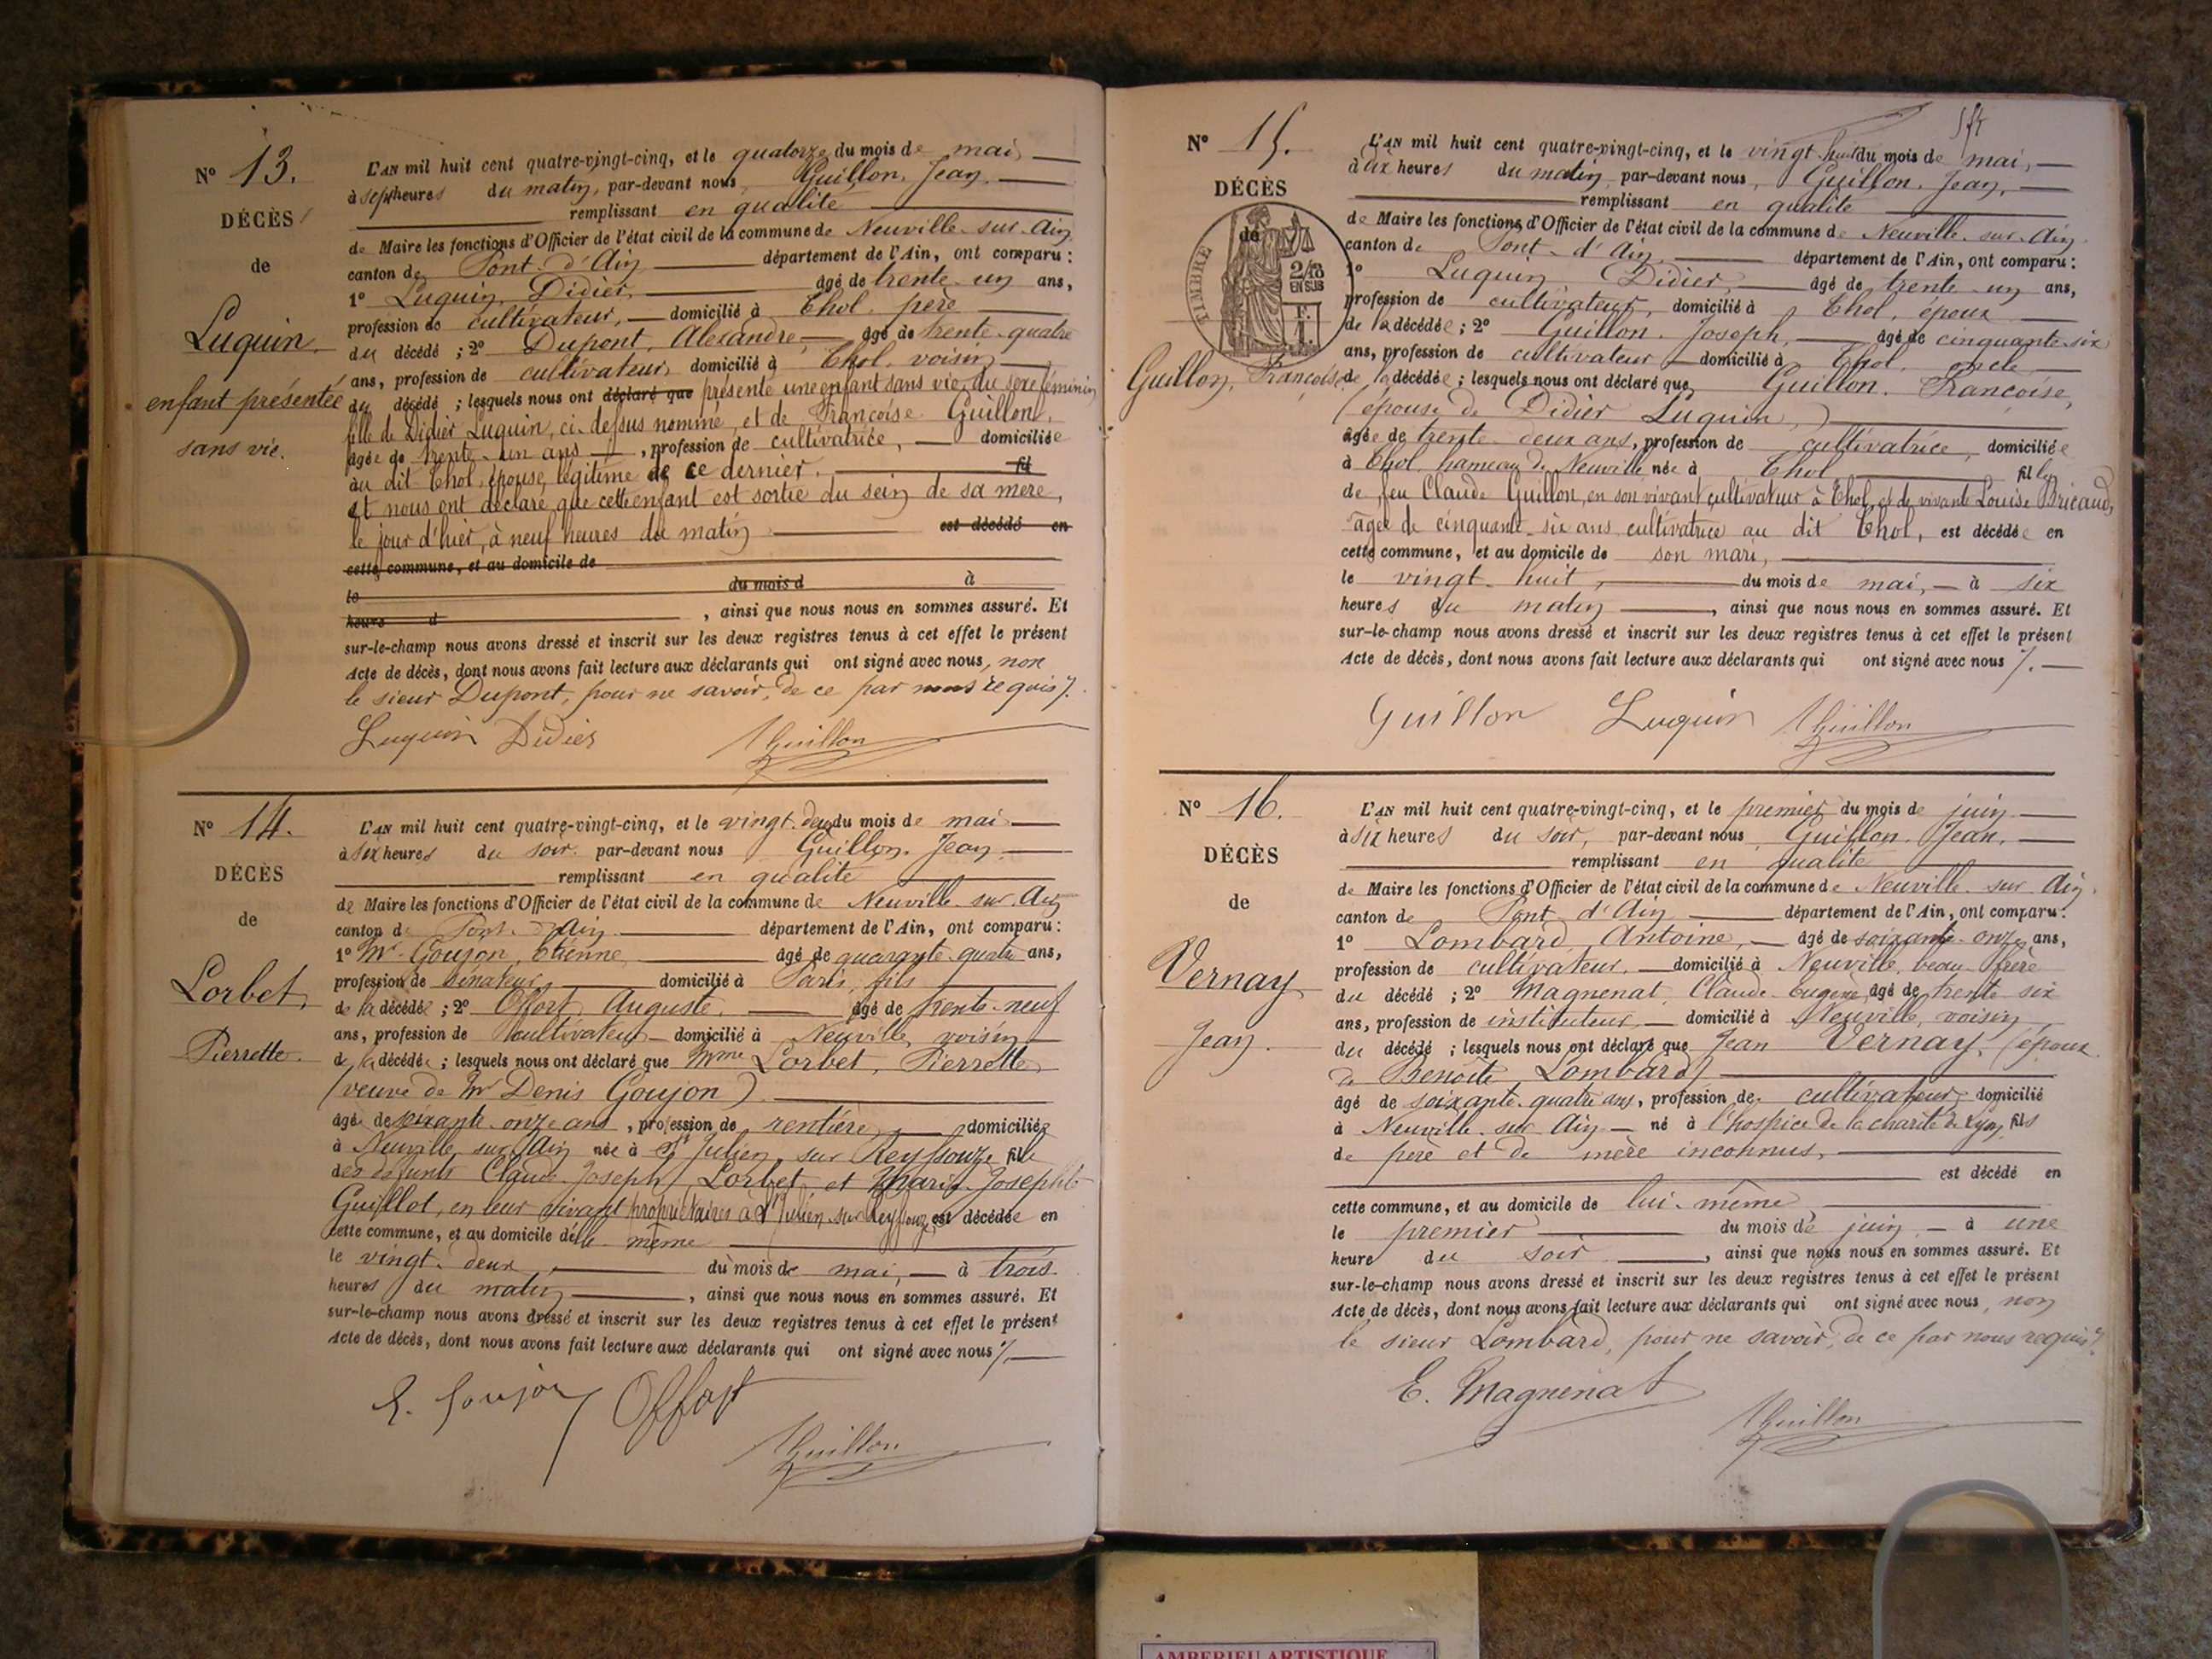 Nº 13.
DÉCÈS
de
Luquin
enfant présentée
sans vie.
L'AN mil huit cent quatre-vingt-cinq, et le quatorze du mois de mai
à sept heures du matin, par-devant nous, Guillon, Jean,
remplissant en qualité
de Maire les fonctions d'Officier de l'état civil de la commune de Neuville-sur-Ain
canton de Pont-d'Ain département de l'Ain, ont comparu :
1º Luquin, Didier, âgé de trente-un ans,
profession de cultivateur, domicilié à Thol, père
du décédé ; 2º Dupont, Alexandre, âgé de trente-quatre
ans, profession de cultivateur, domicilié à Thol, voisin
du décédé ; lesquels nous ont déclaré que présenté une enfant sans vie, du sexe féminin
fille de Didier Luquin, ci-dessus nommé, et de Françoise Guillon,
âgée de trente-un ans, profession de cultivatrice, domiciliée
au dit Thol, épouse légitime de ce dernier. fil
et nous ont déclaré que cette enfant est sortie du sein de sa mère,
le jour d'hier, à neuf heures du matin est décédé en
cette commune, et au domicile de
le du mois d à
heure d , ainsi que nous nous en sommes assuré. Et
sur-le-champ nous avons dressé et inscrit sur les deux registres tenus à cet effet le présent
Acte de décès, dont nous avons fait lecture aux déclarants qui ont signé avec nous, non
le sieur Dupont, pour ne savoir, de ce par nous requis.
Luquin Didier Guillon
Nº 14.
DÉCÈS
de
Lorbet,
Pierrette.
L'AN mil huit cent quatre-vingt-cinq, et le vingt-deux du mois de mai
à six heures du soir, par-devant nous Guillon, Jean,
remplissant en qualité
de Maire les fonctions d'Officier de l'état civil de la commune de Neuville-sur-Ain
canton de Pont-d'Ain département de l'Ain, ont comparu :
1º Mr Goujon, Etienne, âgé de quarante-quatre ans,
profession de Sénateur, domicilié à Paris, fils
de la décédée ; 2º Offort, Auguste, âgé de trente-neuf
ans, profession de cultivateur domicilié à Neuville, voisin
de la décédée ; lesquels nous ont déclaré que Mme Lorbet, Pierrette
(veuve de Mr Denis Goujon)
âgée de soixante-onze ans, profession de rentière, domiciliée
à Neuville sur Ain née à St Julien sur Reyssouze fille
des défunts Claude Joseph Lorbet et Marie Josephte
Guillot, en leur vivant propriétaires à St Julien-sur-Reyssouze, est décédée en
cette commune, et au domicile d'elle même
le vingt-deux du mois de mai, à trois
heures du matin, ainsi que nous nous en sommes assuré. Et
sur-le-champ nous avons dressé et inscrit sur les deux registres tenus à cet effet le présent
Acte de décès, dont nous avons fait lecture aux déclarants qui ont signé avec nous
E. Goujon Offort
Guillon
Nº 15.
DÉCÈS
de
TIMBRE
2/10
EN SUS
Guillon, Françoise
L'AN mil huit cent quatre-vingt-cinq, et le vingt-huit du mois de mai,
à dix heures du matin, par-devant nous, Guillon, Jean,
remplissant en qualité
de Maire les fonctions d'Officier de l'état civil de la commune de Neuville-sur-Ain
canton de Pont-d'Ain département de l'Ain, ont comparu :
1º Luquin, Didier, âgé de trente-un ans,
profession de cultivateur, domicilié à Thol, époux
de la décédée ; 2º Guillon, Joseph, âgé de cinquante-six
ans, profession de cultivateur domicilié à Thol, oncle
de la décédée ; lesquels nous ont déclaré que Guillon, Françoise,
(épouse de Didier Luquin,)
âgée de trente-deux ans, profession de cultivatrice, domiciliée
à Thol, hameau de Neuville née à Thol fille
de feu Claude Guillon, en son vivant cultivateur à Thol, et de vivante Louise Bricaud,
âgée de cinquante-six ans cultivatrice au dit Thol, est décédée en
cette commune, et au domicile de son mari,
le vingt-huit, du mois de mai, à six
heures du matin, ainsi que nous nous en sommes assuré. Et
sur-le-champ nous avons dressé et inscrit sur les deux registres tenus à cet effet le présent
Acte de décès, dont nous avons fait lecture aux déclarants qui ont signé avec nous
Guillon Luquin Guillon
Nº 16.
DÉCÈS
de
Vernay
Jean.
L'AN mil huit cent quatre-vingt-cinq, et le premier du mois de juin
à six heures du soir, par-devant nous, Guillon, Jean,
remplissant en qualité
de Maire les fonctions d'Officier de l'état civil de la commune de Neuville-sur Ain,
canton de Pont-d'Ain département de l'Ain, ont comparu :
1º Lombard, Antoine, âgé de soixante-onze ans,
profession de cultivateur, domicilié à Neuville, beau-frère
du décédé ; 2º Magnenat, Claude-Eugène, âgé de trente-six
ans, profession de instituteur, domicilié à Neuville, voisin
du décédé ; lesquels nous ont déclaré que Jean Vernay, (époux
de Benoîte Lombard)
âgé de soixante-quatre ans, profession de cultivateur, domicilié
à Neuville-sur Ain né à l'hospice de la charité de Lyon, fils
de père et de mère inconnus,
est décédé en
cette commune, et au domicile de lui-même,
le premier du mois de juin, à une
heure du soir, ainsi que nous nous en sommes assuré. Et
sur-le-champ nous avons dressé et inscrit sur les deux registres tenus à cet effet le présent
Acte de décès, dont nous avons fait lecture aux déclarants qui ont signé avec nous, non
le sieur Lombard, pour ne savoir, de ce par nous requis.
E. Magnenat
Guillon
AMBERIEU ARTISTIQUE